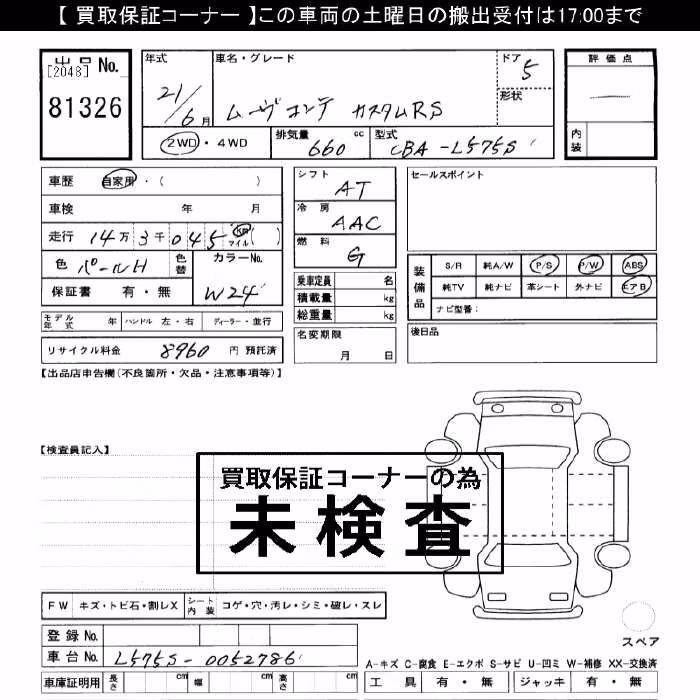 【 買取保証コーナー 】この車両の土曜日の搬出受付は17:00まで
出品 No.
[2048]
81326
年式
21/6月
車名・グレード
ムーヴコンテ カスタムRS
ドア
5
形状
評価点
—
内装
2WD・4WD
排気量 660 cc
型式 CBA-L575S
車歴 自家用・( )
車検 年 月
走行 14万3千045 Km マイル ( )
色 パールH
色替
カラーNo.
W24
保証書 有・無
モデル年式 年
ハンドル 左・右
ディーラー・並行
リサイクル料金 8960 円 預託済
シフト AT
冷房 AAC
燃料 G
乗車定員 名
積載量 kg
総重量 kg
名変期限
月 日
セールスポイント
装備品
S/R 純A/W P/S P/W ABS
純TV 純ナビ 革シート 外ナビ エアB
ナビ型番:
後日品
【出品店申告欄(不良箇所・欠品・注意事項等)】
【検査員記入】
買取保証コーナーの為
未検査
FW キズ・トビ石・割レX
シート内装 コゲ・穴・汚レ・シミ・破レ・スレ
登録No.
車台No. L575S-0052786
車庫証明用 長さ cm 幅 cm 高さ cm
スペア
A-キズ C-腐食 E-エクボ S-サビ U-凹ミ W-補修 XX-交換済
工具 有・無 ジャッキ 有・無